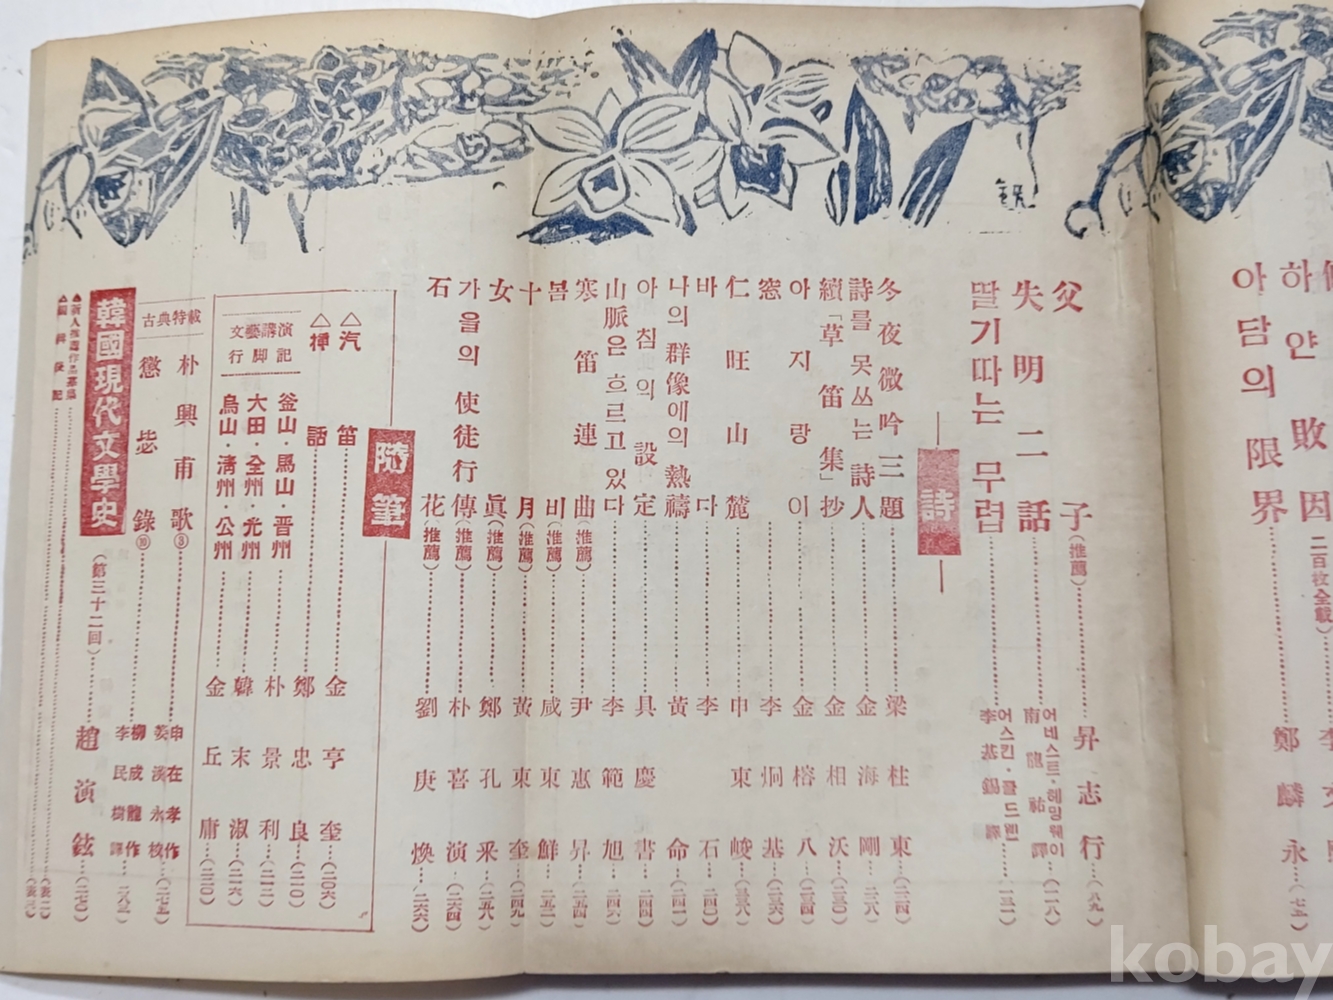 아담의 限界
하얀 敗因 二百枚全載
鄭麟永
父子(推薦)……昇志行…(八九)
失明二話……어네스트·헤밍웨이 南龍祐 譯…(一一八)
딸기따는 무렵……어스킨·콜드웰 李基錫 譯…(一三一)
詩
冬夜微吟三題……梁柱東…(二二四)
詩를 못쓰는 詩人……金海剛…(二二八)
續「草笛集」抄……金相沃…(二三〇)
아지랑이……金榕八…(二三四)
窓……李炯基…(二三六)
仁旺山麓……申東峻…(二三八)
바다……李石…(二四〇)
나의 群像에의 熱禱……黃命…(二四一)
아침의 設定……具慶書…(二四四)
山脈은 흐르고 있다……李範旭…(二四六)
寒笛連曲(推薦)……尹惠昇…(二五四)
봄비(推薦)……咸東鮮…(二五二)
十月(推薦)……黃東奎…(二四九)
女眞(推薦)……鄭孔釆…(二五八)
가을의 使徒行傳(推薦)……朴喜演…(二六四)
石花(推薦)……劉庚煥…(二六六)
隨筆
△汽笛……金亨奎…(二〇六)
△禪話……鄭忠良…(二一〇)
文藝講演
行脚記
釜山·馬山·晋州……朴景利…(二一二)
大田·全州·光州……韓末淑…(二一六)
烏山·淸州·公州……金丘庸…(二二〇)
古典特載
朴興甫歌③……申在孝作 姜漢永校…(二七五)
懲毖錄⑩……柳成龍作 李民樹譯…(二八二)
韓國現代文學史(第三十二回)……趙演鉉…(二七〇)
▲新人推薦作品募集……(表二)
△編輯後記……(表三)
kobay